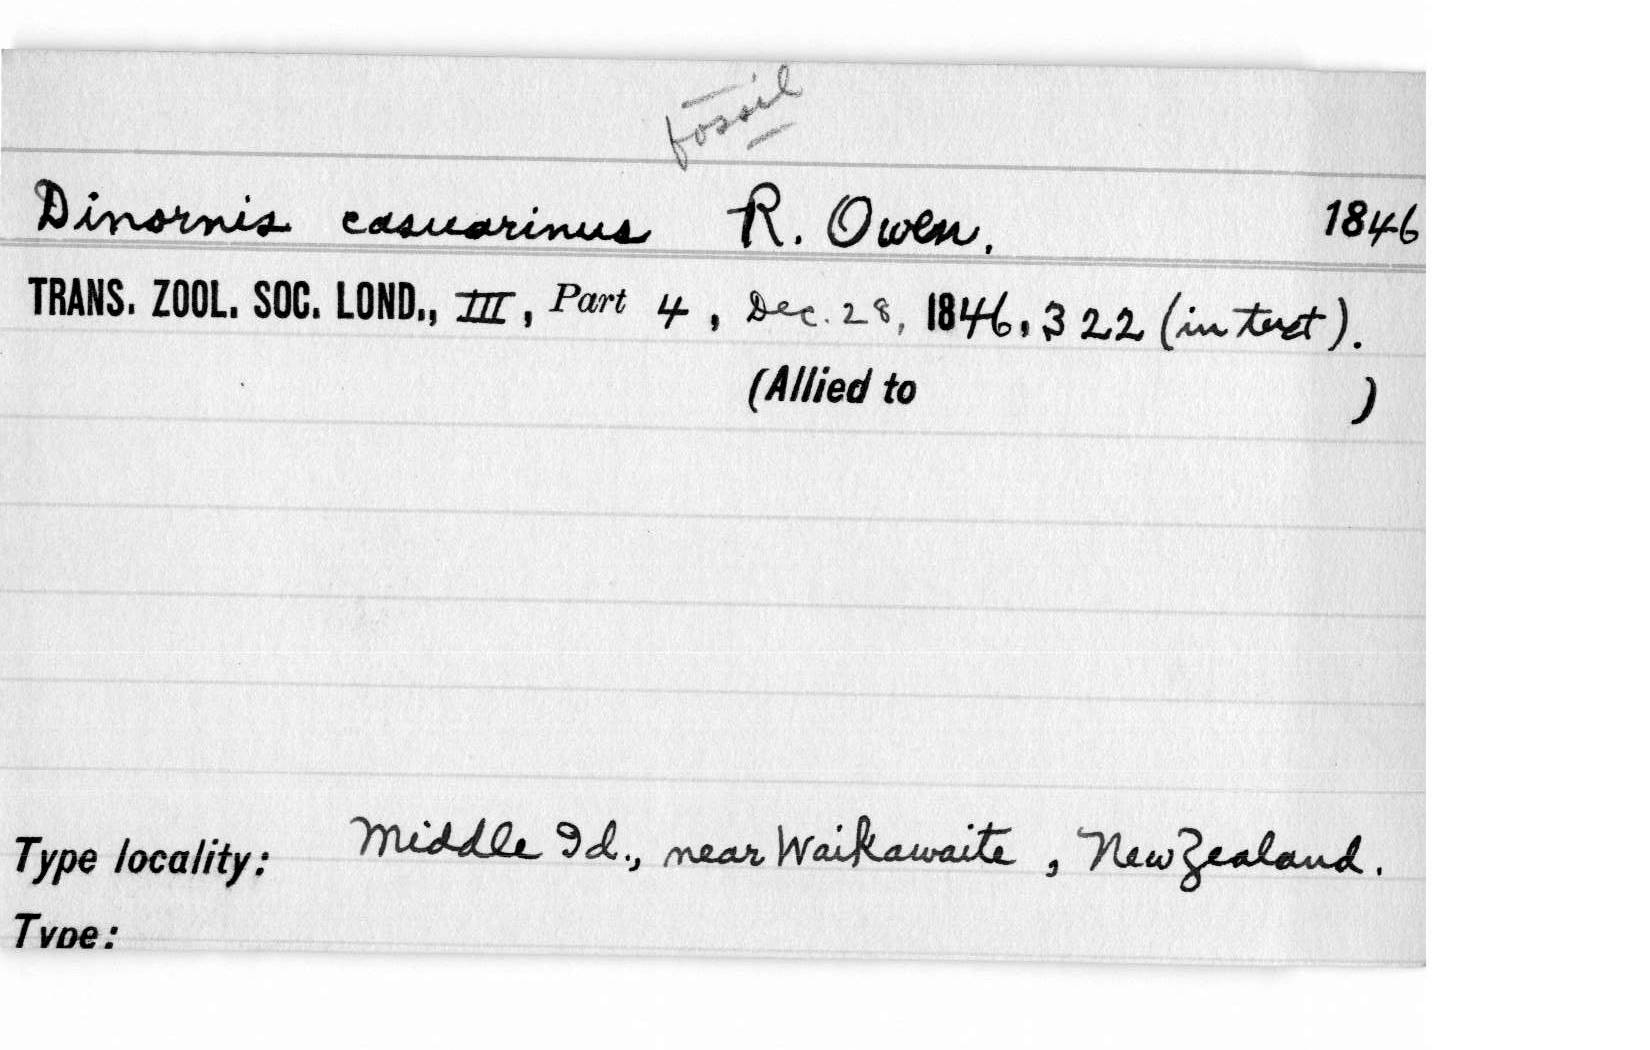 fossil
Dinornis casuarinus R. Owen. 1846
TRANS. ZOOL. SOC. LOND., III, Part 4, Dec. 28, 1846, 322 (in text).
(Allied to )
Type locality: Middle Id., near Waikawaite, New Zealand.
Type: